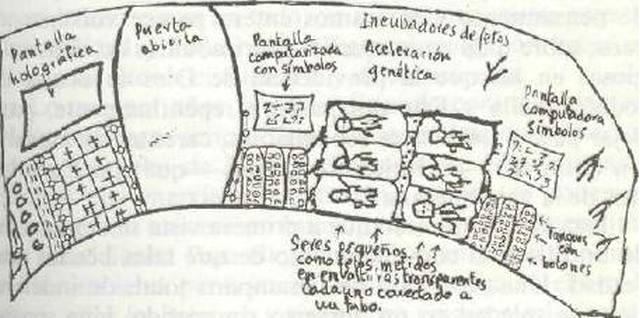 Pantalla
holográfica
Puerta
abierta
Pantalla
computarizada
con símbolos
Incubadores de fetos
Aceleración
genética
Pantalla
computadora
Símbolos
Tanques
y
botones
Seres pequeños
como fetos, metidos
en envolturas transparentes
cada uno conectado a
un tubo.